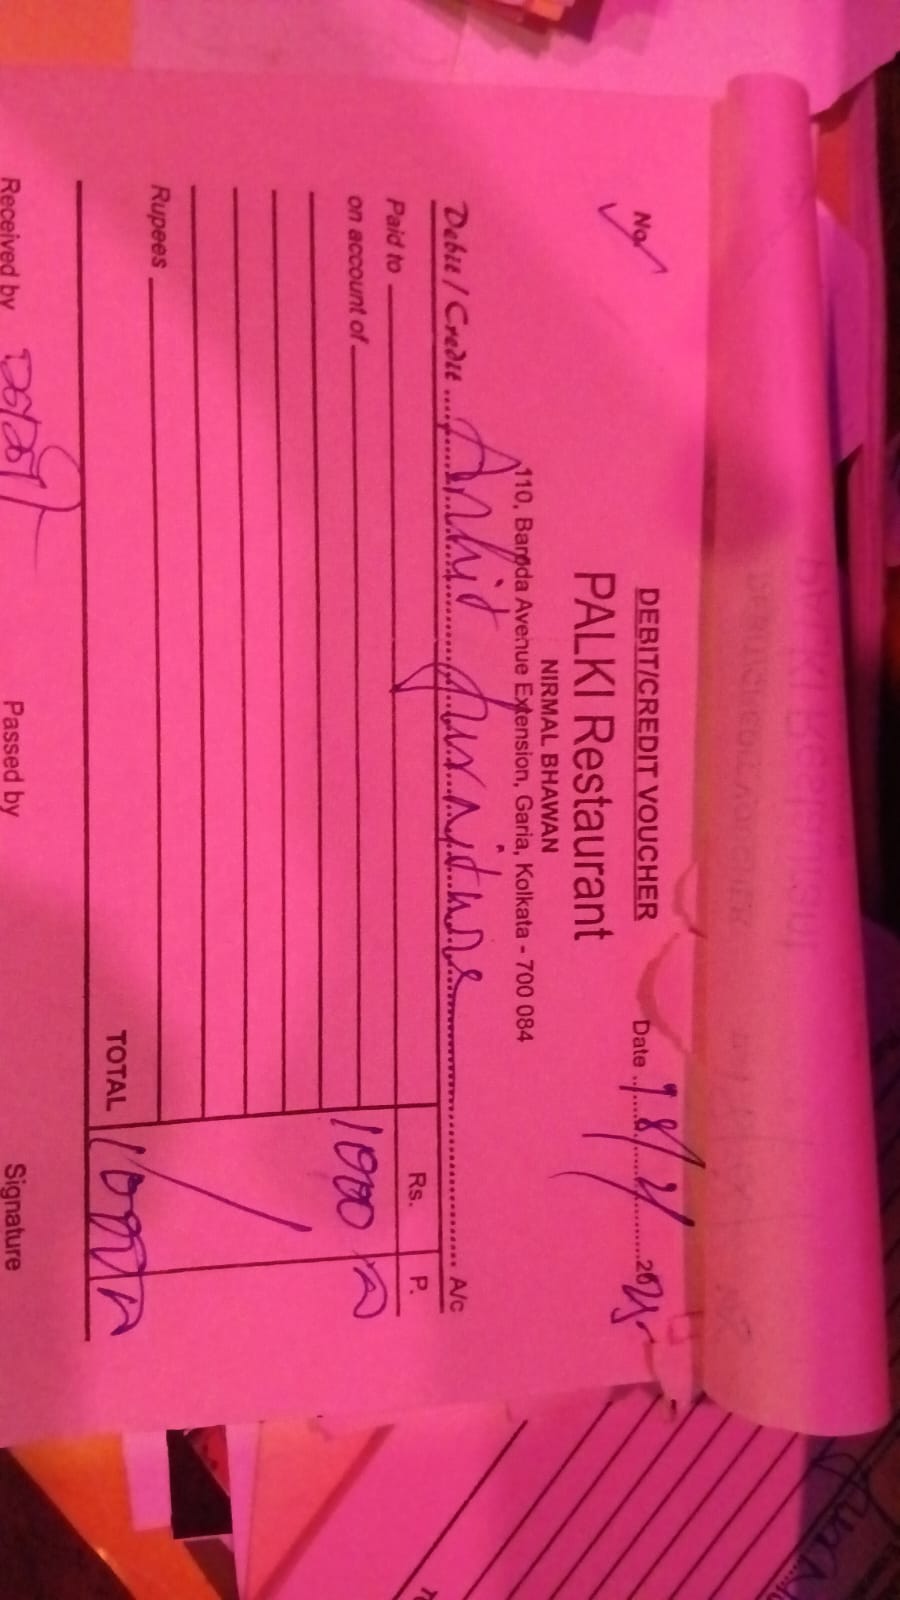 DEBIT/CREDIT VOUCHER
No.
Date 18/2/2025
PALKI Restaurant
NIRMAL BHAWAN
110, Baroda Avenue Extension, Garia, Kolkata - 700 084
Debit / Credit Furniture A/c
Paid to
Rs. P.
on account of
1000
Rupees
TOTAL 1000
Received by
Passed by
Signature